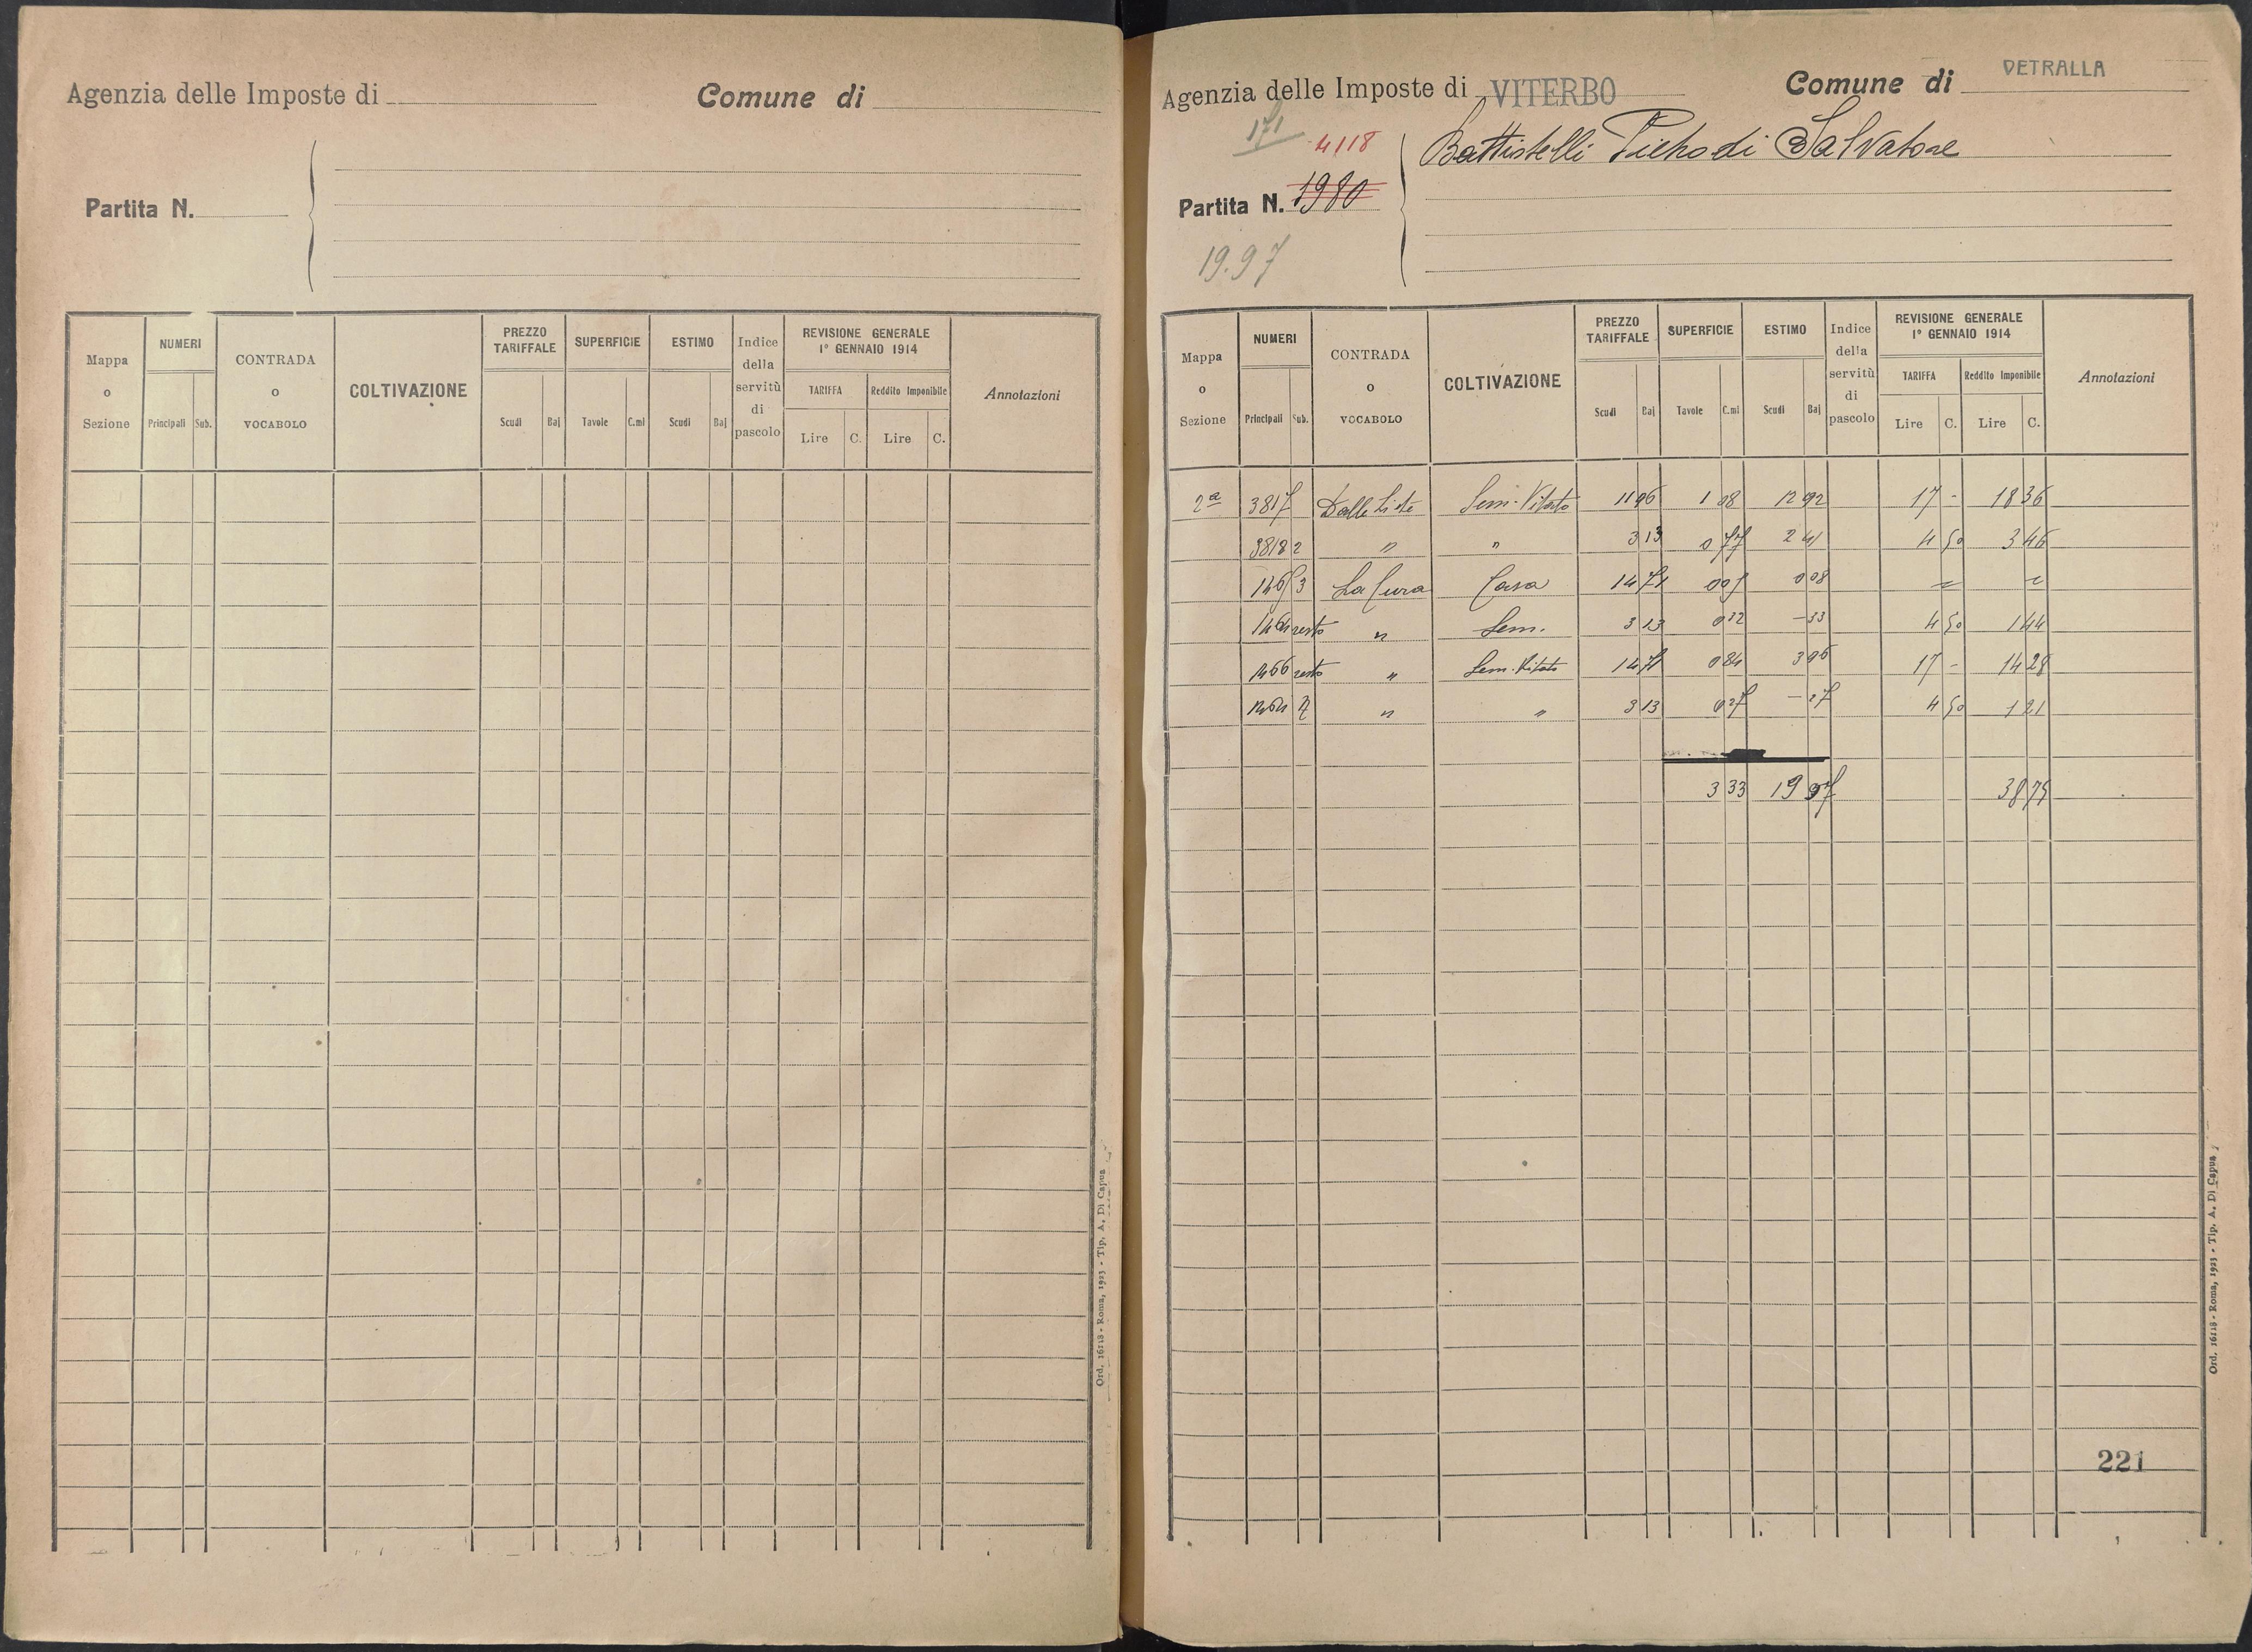 Agenzia delle Imposte di
Comune di
Partita N.
Mappa o Sezione
NUMERI
Principali Sub.
CONTRADA o VOCABOLO
COLTIVAZIONE
PREZZO TARIFFALE
Scudi Baj
SUPERFICIE
Tavole C.mi
ESTIMO
Scudi Baj
Indice della servitù di pascolo
REVISIONE GENERALE
1° GENNAIO 1914
TARIFFA Reddito Imponibile
Lire C. Lire C.
Annotazioni
Ord. 16118 - Roma, 1923 - Tip. A. Di Capua
Agenzia delle Imposte di VITERBO
Comune di VETRALLA
171
4118
Battistelli Pietro di Salvatore
Partita N. 1980
19.97
Mappa o Sezione
NUMERI
Principali Sub.
CONTRADA o VOCABOLO
COLTIVAZIONE
PREZZO TARIFFALE
Scudi Baj
SUPERFICIE
Tavole C.mi
ESTIMO
Scudi Baj
Indice della servitù di pascolo
REVISIONE GENERALE
1° GENNAIO 1914
TARIFFA Reddito Imponibile
Lire C. Lire C.
Annotazioni
2a 3817 Sem. Vitato 11 96 1 08 12 92 17 - 18 36
3818 2 " " 3 13 0 77 2 41 4 50 3 46
3 La Cura Casa 14 71 0 08 = =
1464 resto " Sem. 3 13 0 32 - 33 4 50 1 44
1466 resto " Sem. Vitato 14 71 0 84 3 96 17 - 14 28
" " 3 13 0 27 - 27 4 50 1 21
3 33 19 97 38 75
221
Ord. 16118 - Roma, 1923 - Tip. A. Di Capua